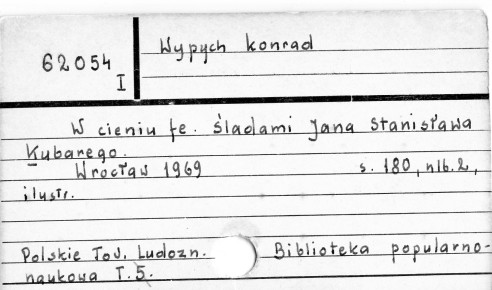 62054
I
Wypych Konrad
W cieniu fe. śladami Jana Stanisława
Kubarego.
Wrocław 1969 s. 180, nlb. 2,
ilustr.
Polskie Tow. Ludozn. Biblioteka popularno-
naukowa T. 5.